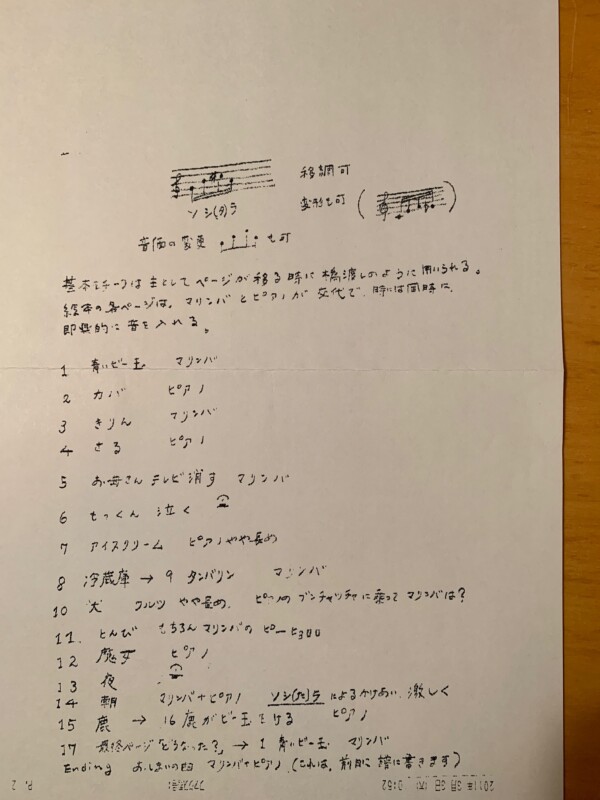 移調可
変形も可 ( )
ソ シ(♭)ラ
音価の変更 も可
基本モチーフは主としてページが移る時に橋渡しのように用いられる。
絵本の各ページは、マリンバとピアノが交代で、時には同時に、
即興的に音を入れる。
1 青いビー玉 マリンバ
2 カバ ピアノ
3 きりん マリンバ
4 さる ピアノ
5 お母さんテレビ消す マリンバ
6 もっくん 泣く
7 アイスクリーム ピアノやや長め
8 冷蔵庫 → 9 タンバリン マリンバ
10 犬 ワルツ やや長め、ピアノのブンチャッチャに乗ってマリンバは?
11. とんび もちろんマリンバのピーヒョロロ
12 魔女 ピアノ
13 夜
14 朝 マリンバ+ピアノ ソシ(♭)ラ によるかけあい、激しく
15 鹿 → 16 鹿がビー玉を ける ピアノ
17 最終ページ「どうなった?」 → 1 青いビー玉 マリンバ
Ending おしまいの曲 マリンバ+ピアノ (これは、前日に譜に書きます)
2011年 3月 3日(木) 0:52
P. 2